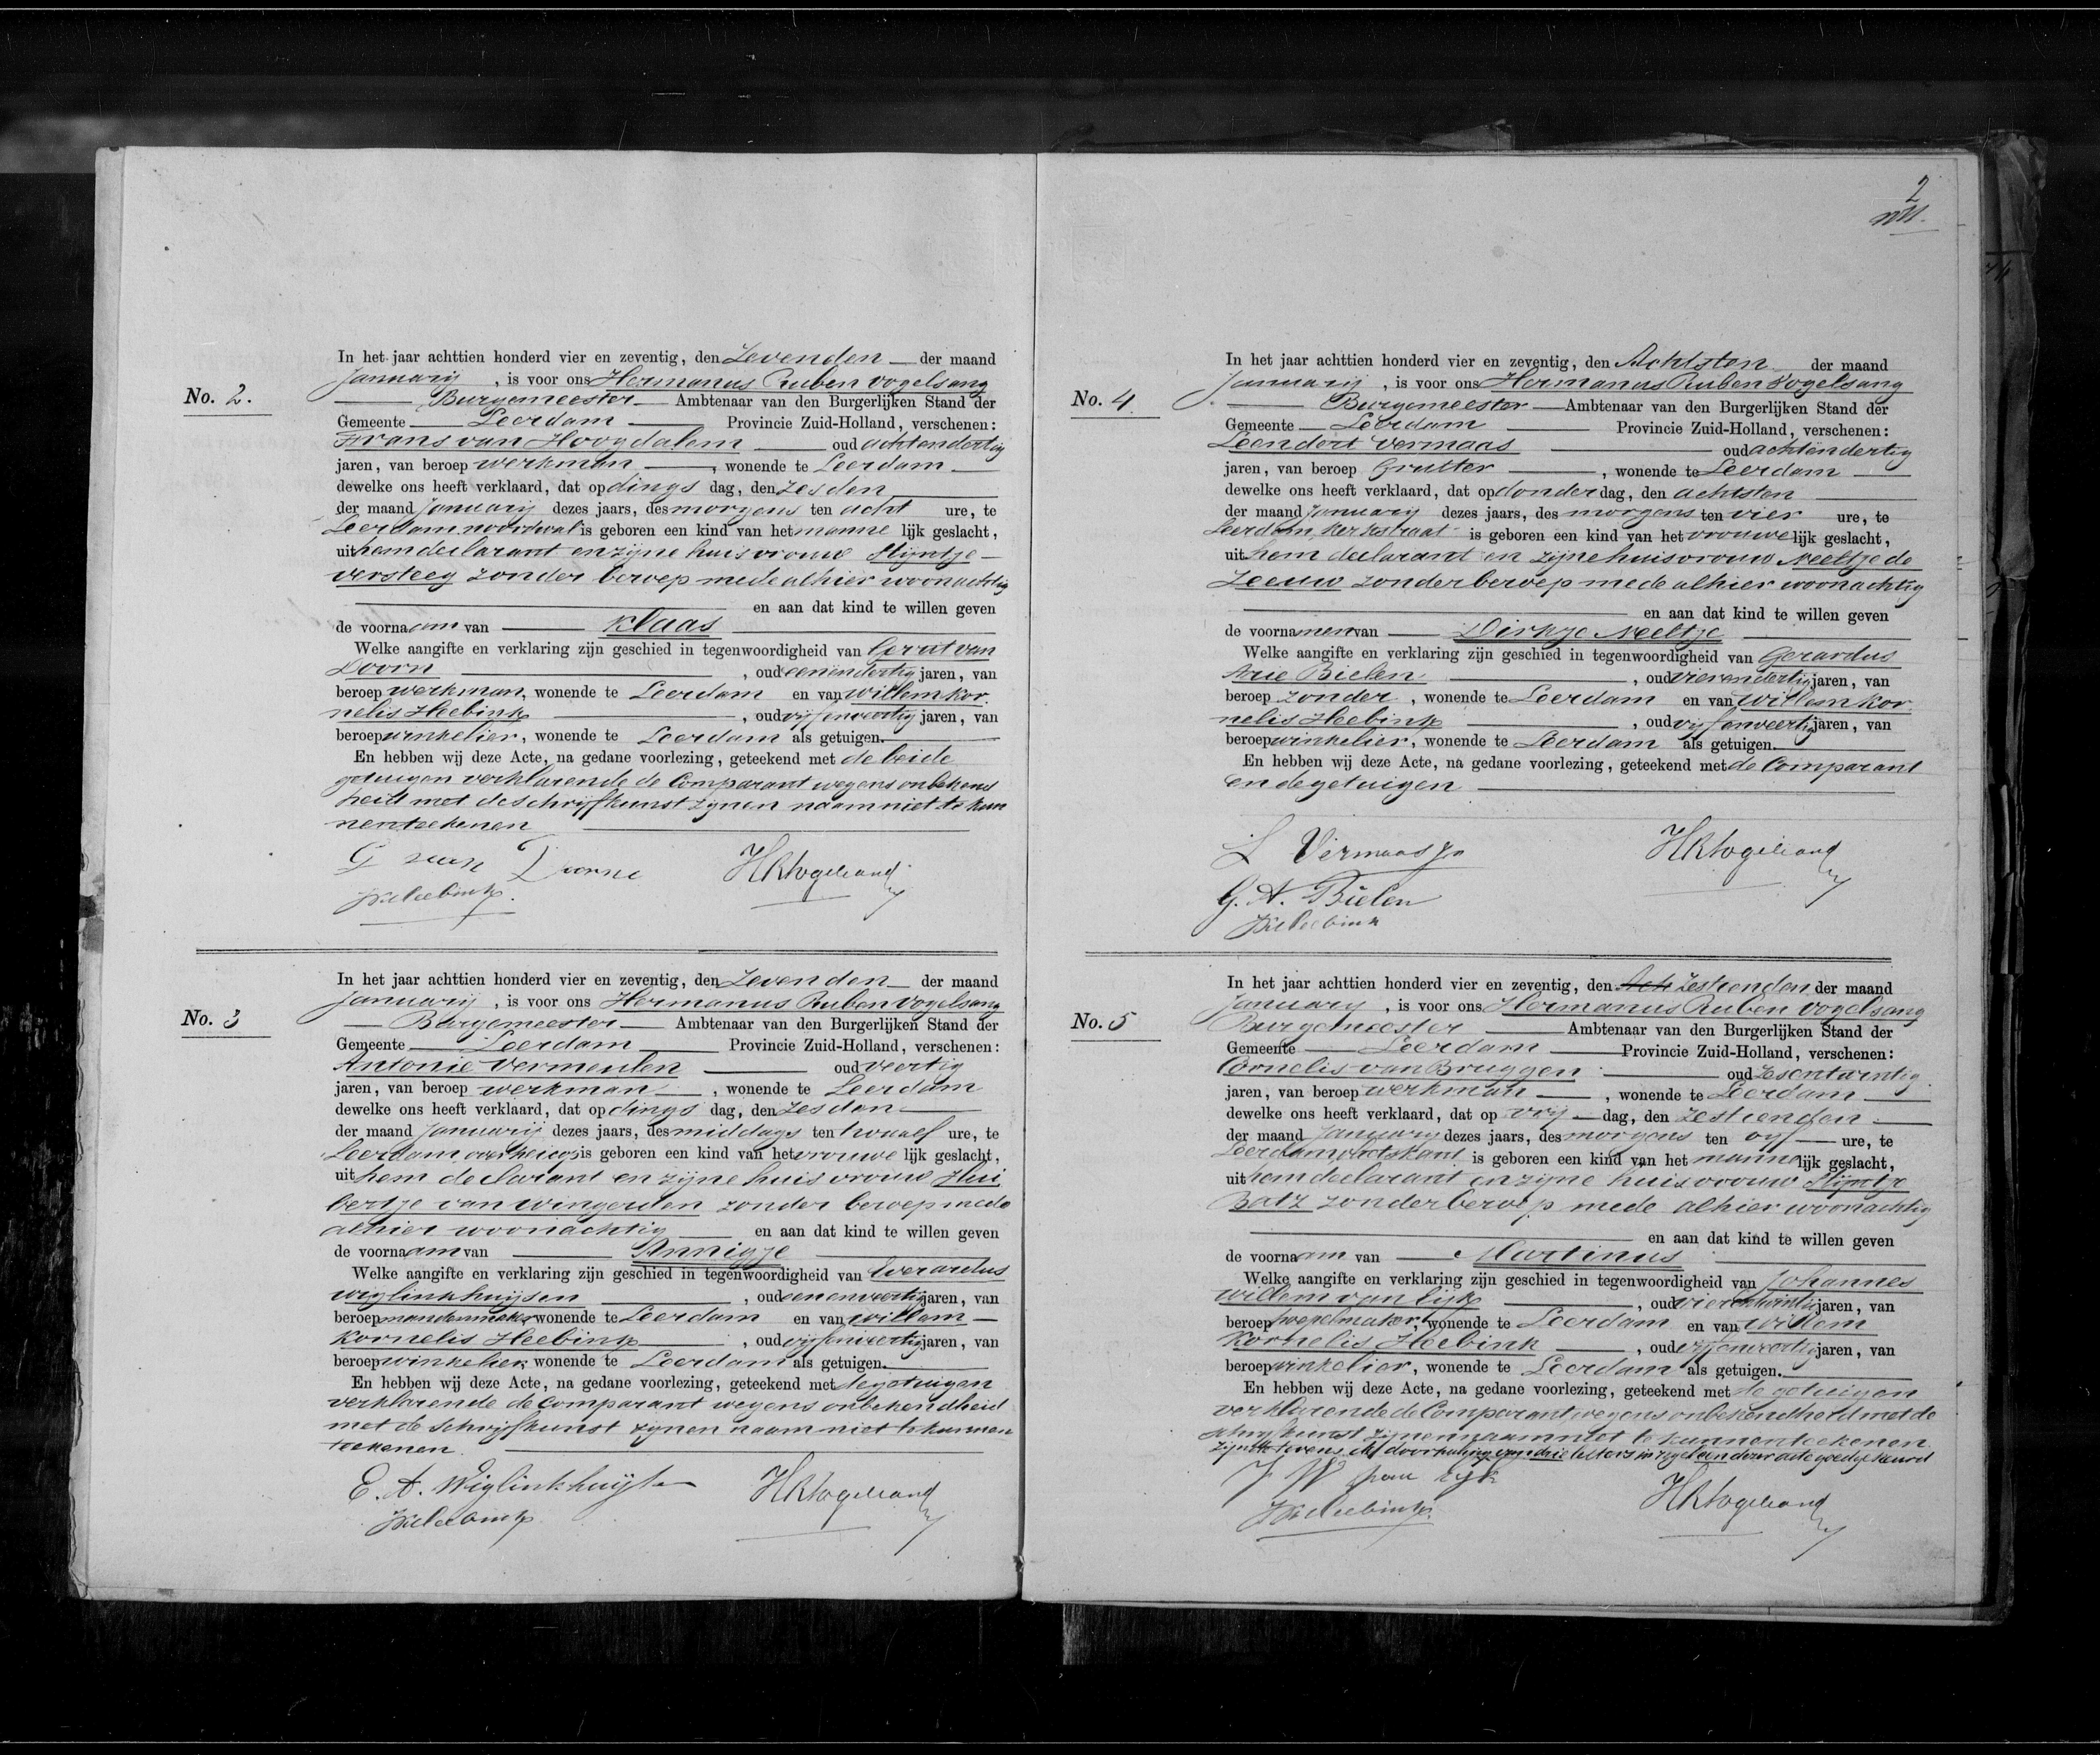 No. 2.
In het jaar achttien honderd vier en zeventig, den Zevenden der maand
Januarij, is voor ons Hermanus Ruben Vogelsang
Burgemeester Ambtenaar van den Burgerlijken Stand der
Gemeente Leerdam Provincie Zuid-Holland, verschenen:
Frans van Hoogdalem oud achtendertig
jaren, van beroep werkman, wonende te Leerdam
dewelke ons heeft verklaard, dat op dings dag, den zesden
der maand Januarij dezes jaars, des morgens ten acht ure, te
Leerdam noordwal is geboren een kind van het manne lijk geslacht,
uit hem declarant en zijne huisvrouw Stijntje
Versteeg zonder beroep mede alhier woonachtig
en aan dat kind te willen geven
de voornaam van Klaas
Welke aangifte en verklaring zijn geschied in tegenwoordigheid van Gerrit van
Doorn, oud eenendertig jaren, van
beroep werkman, wonende te Leerdam en van Willem Kor
nelis Heebink, oud vijfenveertig jaren, van
beroep winkelier, wonende te Leerdam als getuigen.
En hebben wij deze Acte, na gedane voorlezing, geteekend met de beide
getuigen verklarende de Comparant wegens onbekend
heid met de schrijfkunst zijnen naam niet te kun
nen teekenen
G van Doorne HRVogelsang
WKHeebink.
No. 3
In het jaar achttien honderd vier en zeventig, den Zevenden der maand
Januarij, is voor ons Hermanus Ruben Vogelsang
Burgemeester Ambtenaar van den Burgerlijken Stand der
Gemeente Leerdam Provincie Zuid-Holland, verschenen:
Antonie Vermeulen oud veertig
jaren, van beroep werkman, wonende te Leerdam
dewelke ons heeft verklaard, dat op dings dag, den zesden
der maand Januarij dezes jaars, des middags ten twaalf ure, te
Leerdam is geboren een kind van het vrouwe lijk geslacht,
uit hem declarant en zijne huisvrouw Hui
bertje van Wingerden zonder beroep mede
alhier woonachtig en aan dat kind te willen geven
de voornaam van Annigje
Welke aangifte en verklaring zijn geschied in tegenwoordigheid van Everardus
Wiglinkhuijsen, oud eenenveertig jaren, van
beroep mandenmaker wonende te Leerdam en van Willem
Kornelis Heebink, oud vijfenveertig jaren, van
beroep winkelier, wonende te Leerdam als getuigen.
En hebben wij deze Acte, na gedane voorlezing, geteekend met de getuigen
verklarende de Comparant wegens onbekendheid
met de schrijfkunst zijnen naam niet te kunnen
teekenen.
E. A. Wiglinkhuijse HRVogelsang
WKHeebink
2
No. 4
In het jaar achttien honderd vier en zeventig, den Achtsten der maand
Januarij, is voor ons Hermanus Ruben Vogelsang
Burgemeester Ambtenaar van den Burgerlijken Stand der
Gemeente Leerdam Provincie Zuid-Holland, verschenen:
Leendert Vermaas oud achtendertig
jaren, van beroep Grutter, wonende te Leerdam
dewelke ons heeft verklaard, dat op donder dag, den achtsten
der maand Januarij dezes jaars, des morgens ten vier ure, te
Leerdam, Kerkstraat is geboren een kind van het vrouwe lijk geslacht,
uit hem declarant en zijne huisvrouw Neeltje de
Zeeuw zonder beroep mede alhier woonachtig
en aan dat kind te willen geven
de voornamen van Dirkje Neeltje
Welke aangifte en verklaring zijn geschied in tegenwoordigheid van Gerardus
Arie Bielen, oud vierendertig jaren, van
beroep zonder, wonende te Leerdam en van Willem Kor
nelis Heebink, oud vijfenveertig jaren, van
beroep winkelier, wonende te Leerdam als getuigen.
En hebben wij deze Acte, na gedane voorlezing, geteekend met de Comparant
en de getuigen
L Vermaas HRVogelsang
G. A. Bielen
WKHeebink
No. 5
In het jaar achttien honderd vier en zeventig, den Ach Zestienden der maand
Januarij, is voor ons Hermanus Ruben Vogelsang
Burgemeester Ambtenaar van den Burgerlijken Stand der
Gemeente Leerdam Provincie Zuid-Holland, verschenen:
Cornelis van Bruggen oud zesentwintig
jaren, van beroep werkman, wonende te Leerdam
dewelke ons heeft verklaard, dat op vrij dag, den zestienden
der maand Januarij dezes jaars, des morgens ten vijf ure, te
Leerdam is geboren een kind van het manne lijk geslacht,
uit hem declarant en zijne huisvrouw Stijntje
Batz zonder beroep mede alhier woonachtig
en aan dat kind te willen geven
de voornaam van Martinus
Welke aangifte en verklaring zijn geschied in tegenwoordigheid van Johannes
Willem van Eijk, oud jaren, van
beroep hoepelmaker, wonende te Leerdam en van Willem
Kornelis Heebink, oud vijfenveertig jaren, van
beroep winkelier, wonende te Leerdam als getuigen.
En hebben wij deze Acte, na gedane voorlezing, geteekend met de getuigen
verklarende de Comparant wegens onbekendheid met de
schrijfkunst zijnen naam niet te kunnen teekenen.
zijnde tevens de doorhaling van drie letters in regel een dezer acte goedgekeurd
J W van Eijk HRVogelsang
WKHeebink.